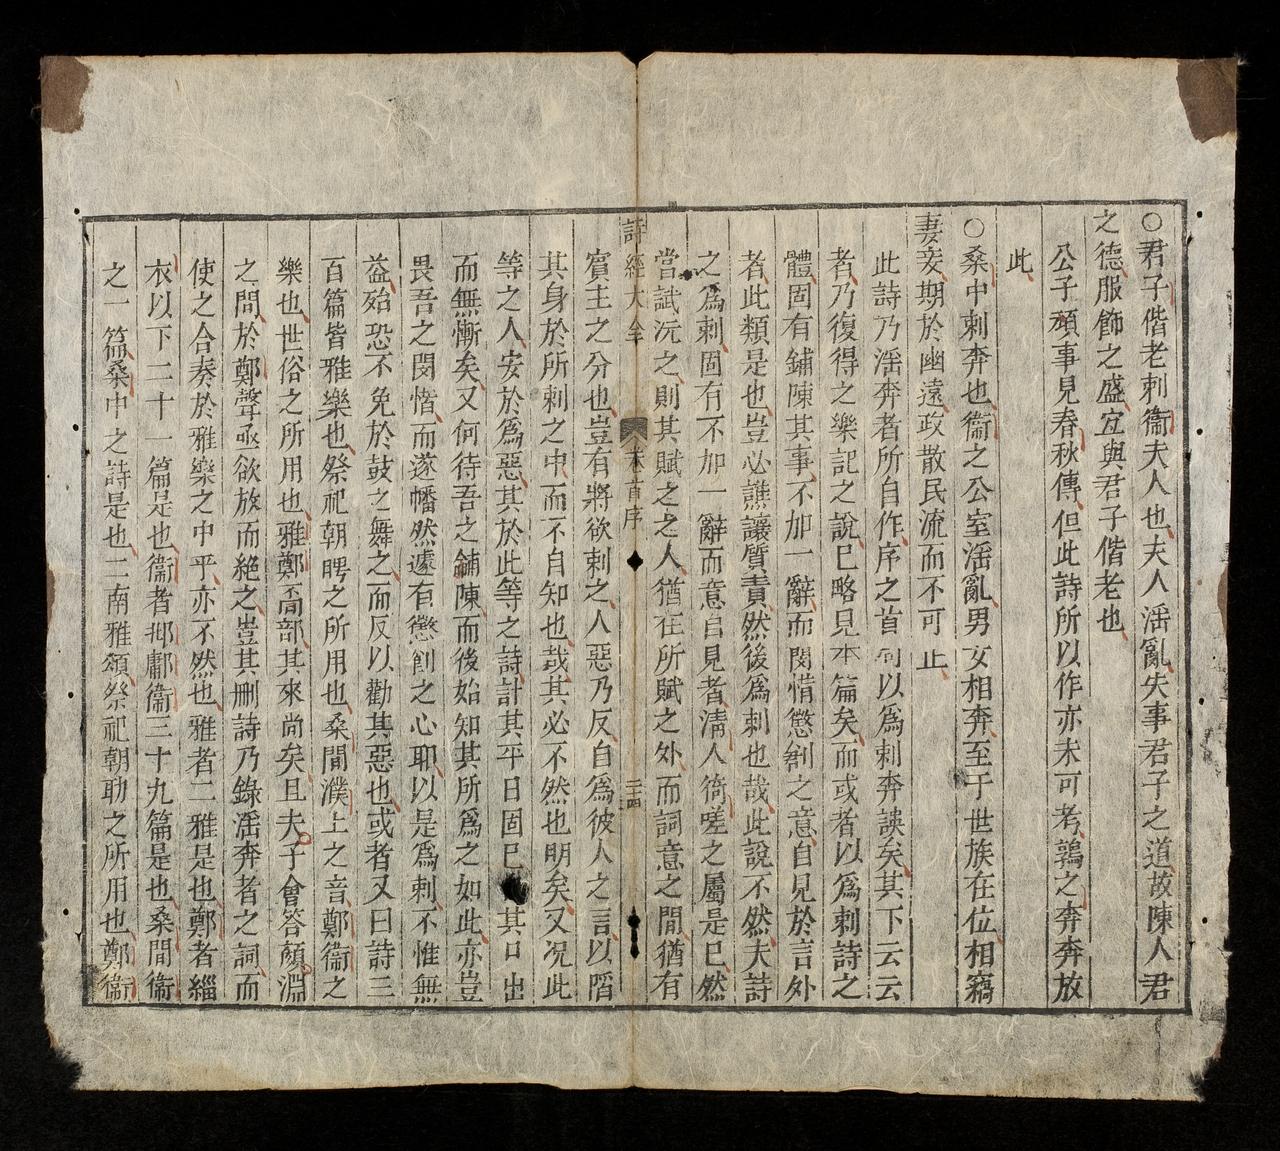 ○君子偕老刺衞夫人也夫人淫亂失事君子之道故陳人君
之德服飾之盛宜與君子偕老也
公子頑事見春秋傳但此詩所以作亦未可考鶉之奔奔放
此
○桑中刺奔也衞之公室淫亂男女相奔至于世族在位相竊
妻妾期於幽遠政散民流而不可止
此詩乃淫奔者所自作序之首句以為刺奔誤矣其下云云
者乃復得之樂記之說已略見本篇矣而或者以為刺詩之
體固有鋪陳其事不加一辭而閔惜懲創之意自見於言外
者此類是也豈必譙讓質責然後為刺也哉此說不然夫詩
之為刺固有不加一辭而意自見者清人猗嗟之屬是已然
嘗試沅之則其賦之之人猶在所賦之外而詞意之間猶有
詩經大全 卷首序 二十四
賓主之分也豈有將欲刺之人惡乃反自為彼人之言以陷
其身於所刺之中而不自知也哉其必不然也明矣又況此
等之人安於為惡其於此等之詩計其平日固已 其口出
而無慚矣又何待吾之鋪陳而後始知其所為之如此亦豈
畏吾之閔惜而遂幡然遽有懲創之心耶以是為刺不惟無
益殆恐不免於鼓之舞之而反以勸其惡也或者又曰詩三
百篇皆雅樂也祭祀朝聘之所用也桑間濮上之音鄭衞之
樂也世俗之所用也雅鄭不同部其來尚矣且夫子會答顏淵
之問於鄭聲亟欲放而絕之豈其刪詩乃錄淫奔者之詞而
使之合奏於雅樂之中乎亦不然也雅者二雅是也鄭者緇
衣以下二十一篇是也衞者邶鄘衞三十九篇是也桑間衞
之一篇桑中之詩是也二南雅頌祭祀朝聘之所用也鄭衞